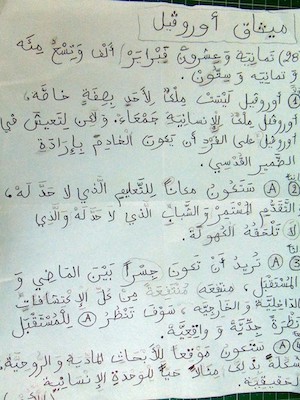 ميثاق أوروڤيل
(28) ثمانية وَعِشرونَ فَبْرايَر أَلف وَتِسْعُ مِئَه
و ثمانيه وَ سِتُّون.
① أوروڤيل لَيْسَتْ مِلْكاً لِأَحَدٍ بِصِفَةٍ خاصَّه،
أوروڤيل مِلكاً لِلإنسانِيَةِ جَمْعَاءَ. وَلَكِن لِتَعيشَ في
أوروڤيل عَلَى الفَرْدِ أن يَكونَ الخادِمَ بإرادَةٍ
للضَّميرِ القُدْسِي.
② Ⓐ سَتَكُونُ مكاناً لِلتَعليمِ الَّذي لا حَدَّ لَهُ،
وَالتَقَدُّمِ المُسْتَمِر وَ الشَّبابُ الَّذي لا حَدَّ لَهُ وَالَّذِي
لَا تَلْحَقُهُ الكُهولَة.
③ Ⓐ تُريدُ أنْ تَكونَ جِسْراً بَيْنَ المَاضِي وَ
المُسْتَقْبَل، مُنتَفِعَةً مِنْ كُلِّ الإِكتِشَافاتِ
الدَّاخِلِيَّة وَ الخارِجِيَّه، سَوْفَ تَنْظُرُ Ⓐ لِلْمُسْتَقْبَلِ
نَظْرَةً جِدِّيَّة وَ واقِعِيَّة.
④ Ⓐ سَتكونُ مَوْقِعاً لِلأبحاثِ المادية وَ الرّوحيّة،
مُشَكِّلَةً بِذَلِكَ مِثَالاً حَيّاً لِلوَحدةِ الإنسَانِيَة
الحقيقيَّة.